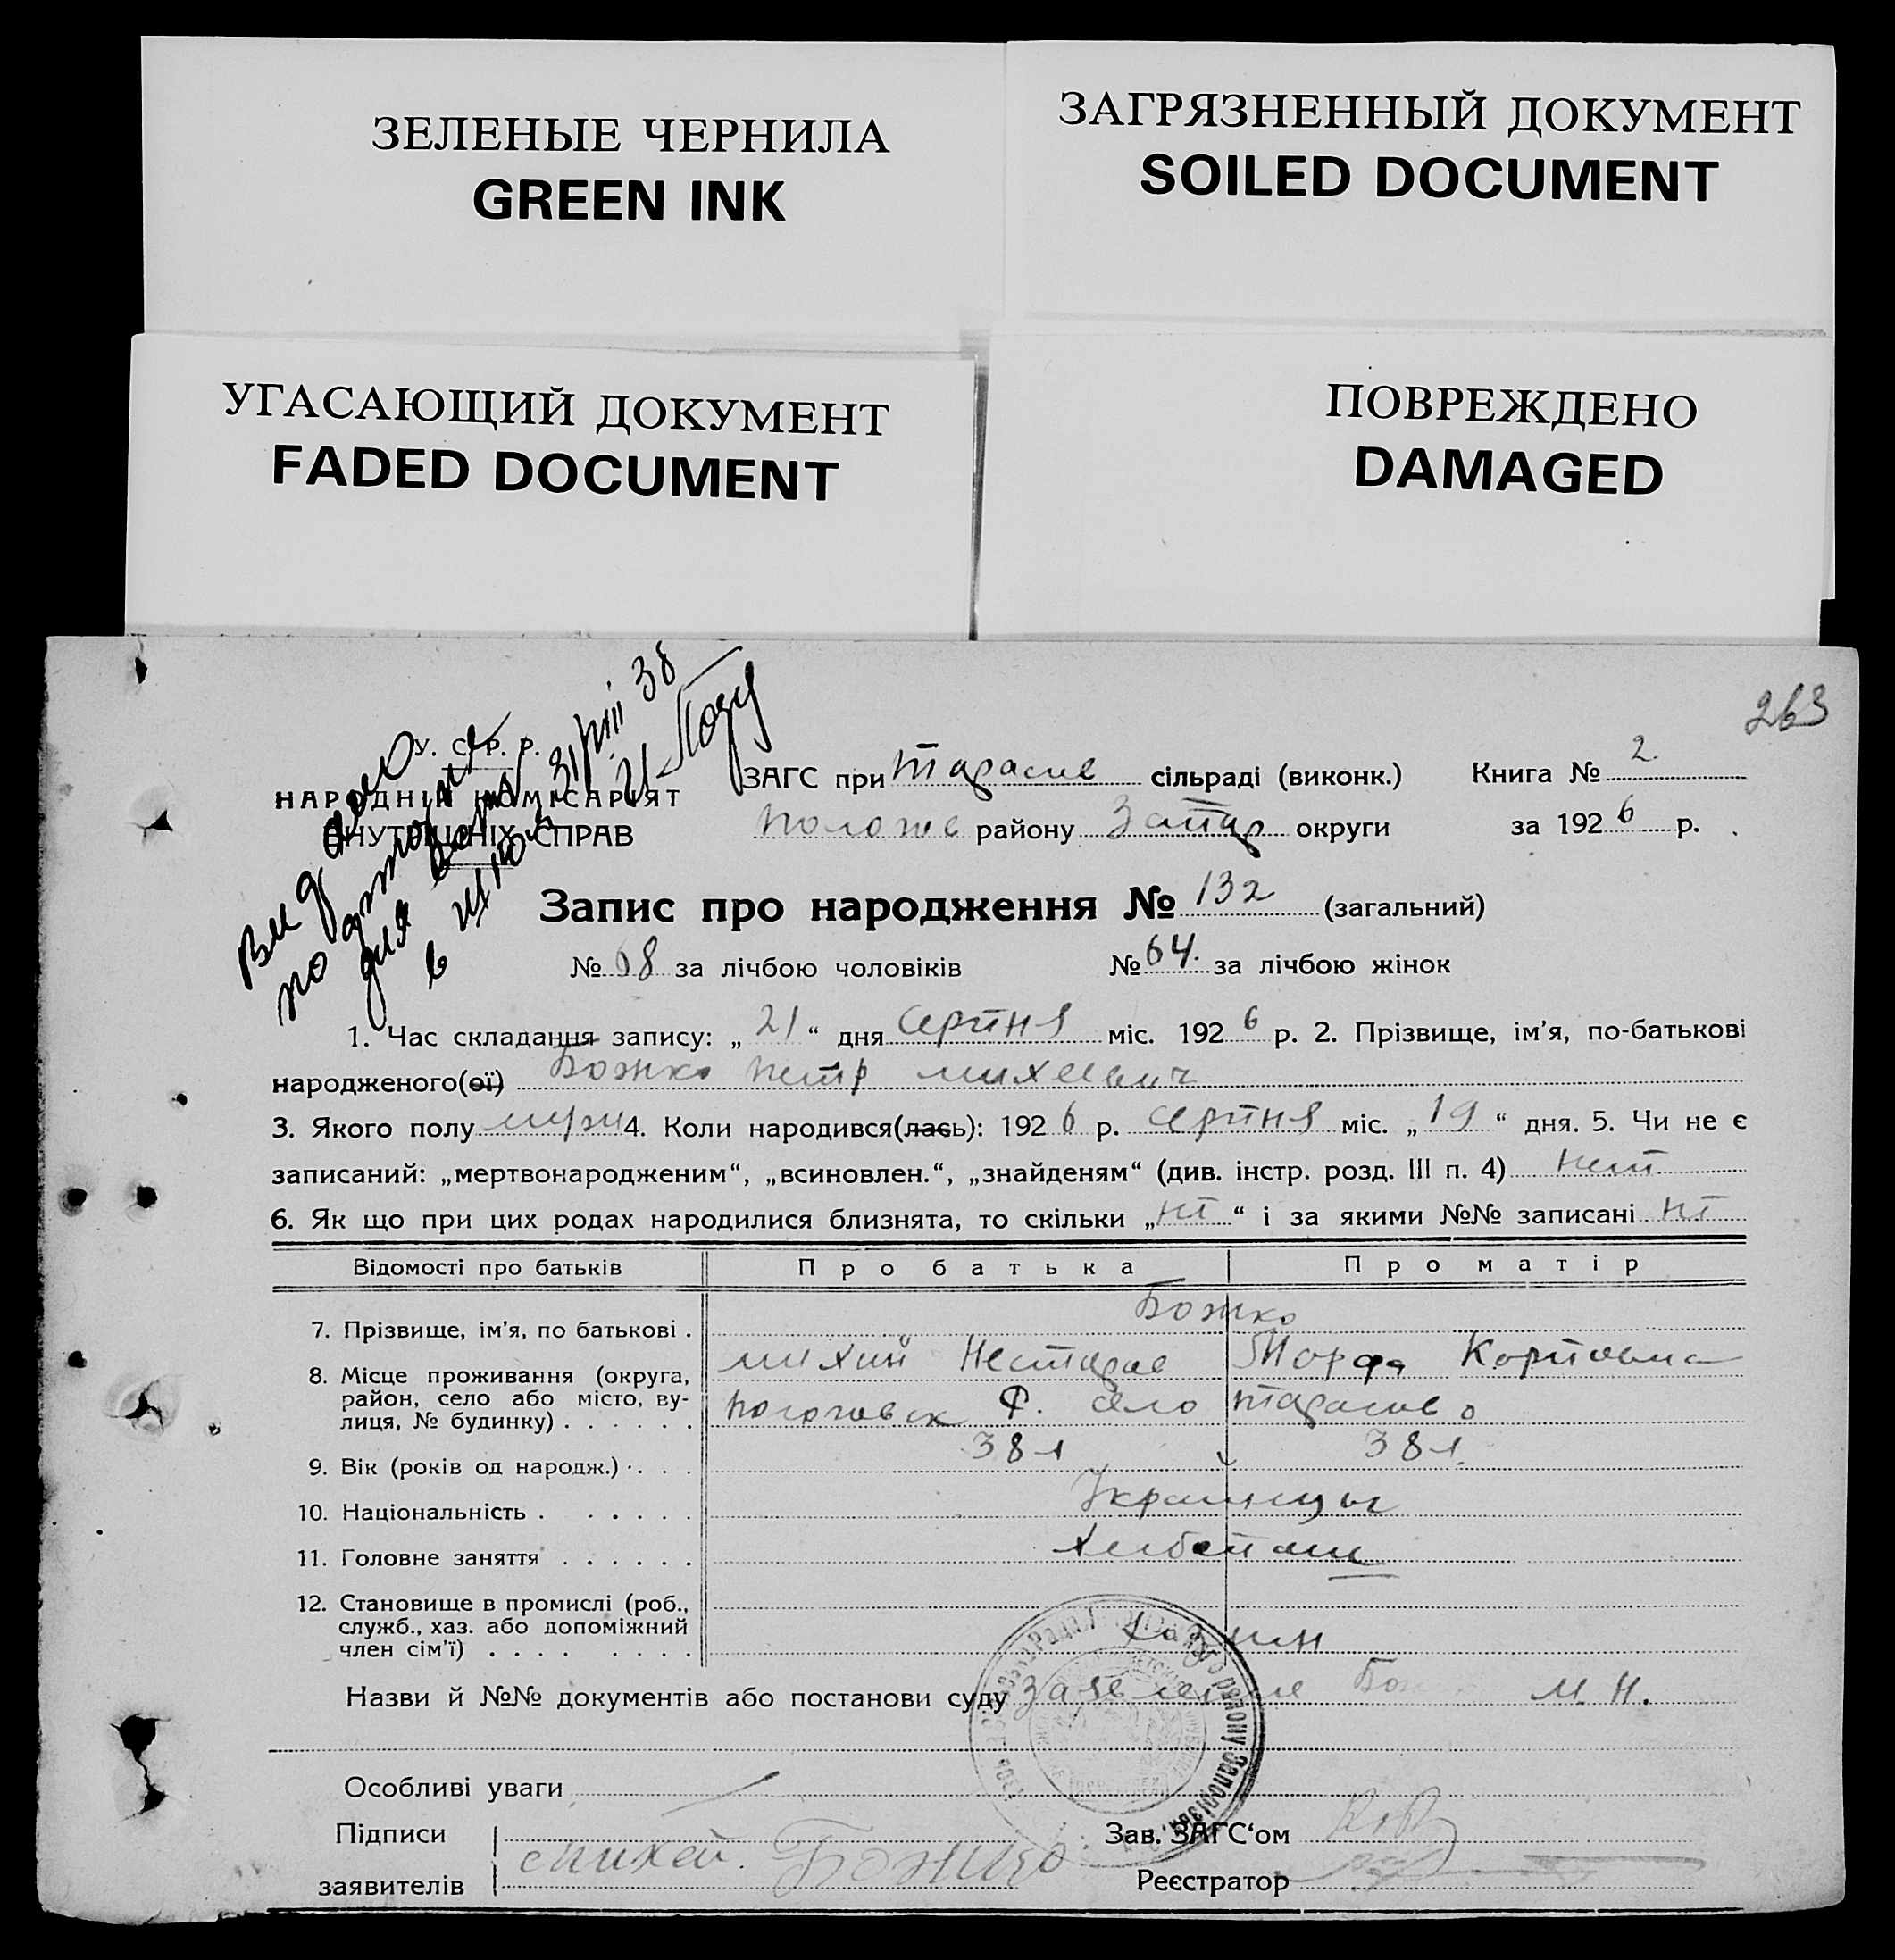 ЗЕЛЕНЫЕ ЧЕРНИЛА
GREEN INK
ЗАГРЯЗНЕННЫЙ ДОКУМЕНТ
SOILED DOCUMENT
УГАСАЮЩИЙ ДОКУМЕНТ
FADED DOCUMENT
ПОВРЕЖДЕНО
DAMAGED
263
У. С. Р. Р.
НАРОДНІЙ КОМІСАРІЯТ
ВНУТРІШНІХ СПРАВ
31/VIII 38
ЗАГС при Тарасив сільраді (виконк.) Книга № 2
району Запор округи за 1926 р.
Запис про народження № 132 (загальний)
№ 68 за лічбою чоловіків № 64. за лічбою жінок
1. Час складання запису: „21“ дня Серпня міс. 1926 р. 2. Прізвище, ім’я, по-батькові
народженого(ої) Божко Петр Михеевич
3. Якого полу муж 4. Коли народився(лась): 1926 р. серпня міс. „19“ дня. 5. Чи не є
записаний: „мертвонародженим“, „всиновлен.“, „знайденям“ (див. інстр. розд. III п. 4) нет
6. Як що при цих родах народилися близнята, то скільки „нт“ і за якими №№ записані нт
Відомості про батьків Про батька Про матір
7. Прізвище, ім’я, по батькові . Божко
Михий Нестеров Марфа Карповна
8. Місце проживання (округа,
район, село або місто, ву-
лиця, № будинку) . . . . . . село Тарасивo
9. Вік (років од народж.) . . . 38 л 38 л.
10. Національність . . . . . . Украинцы
11. Головне заняття . . . . . . Хлебопаш
12. Становище в промислі (роб.,
служб., хаз. або допоміжний
член сім’ї) . . . . . . . .
Назви й №№ документів або постанови суду Заявление Бож М. Н.
Особливі уваги
Підписи
заявителів Михей. Божко
Зав. ЗАГС‘ом
Реєстратор